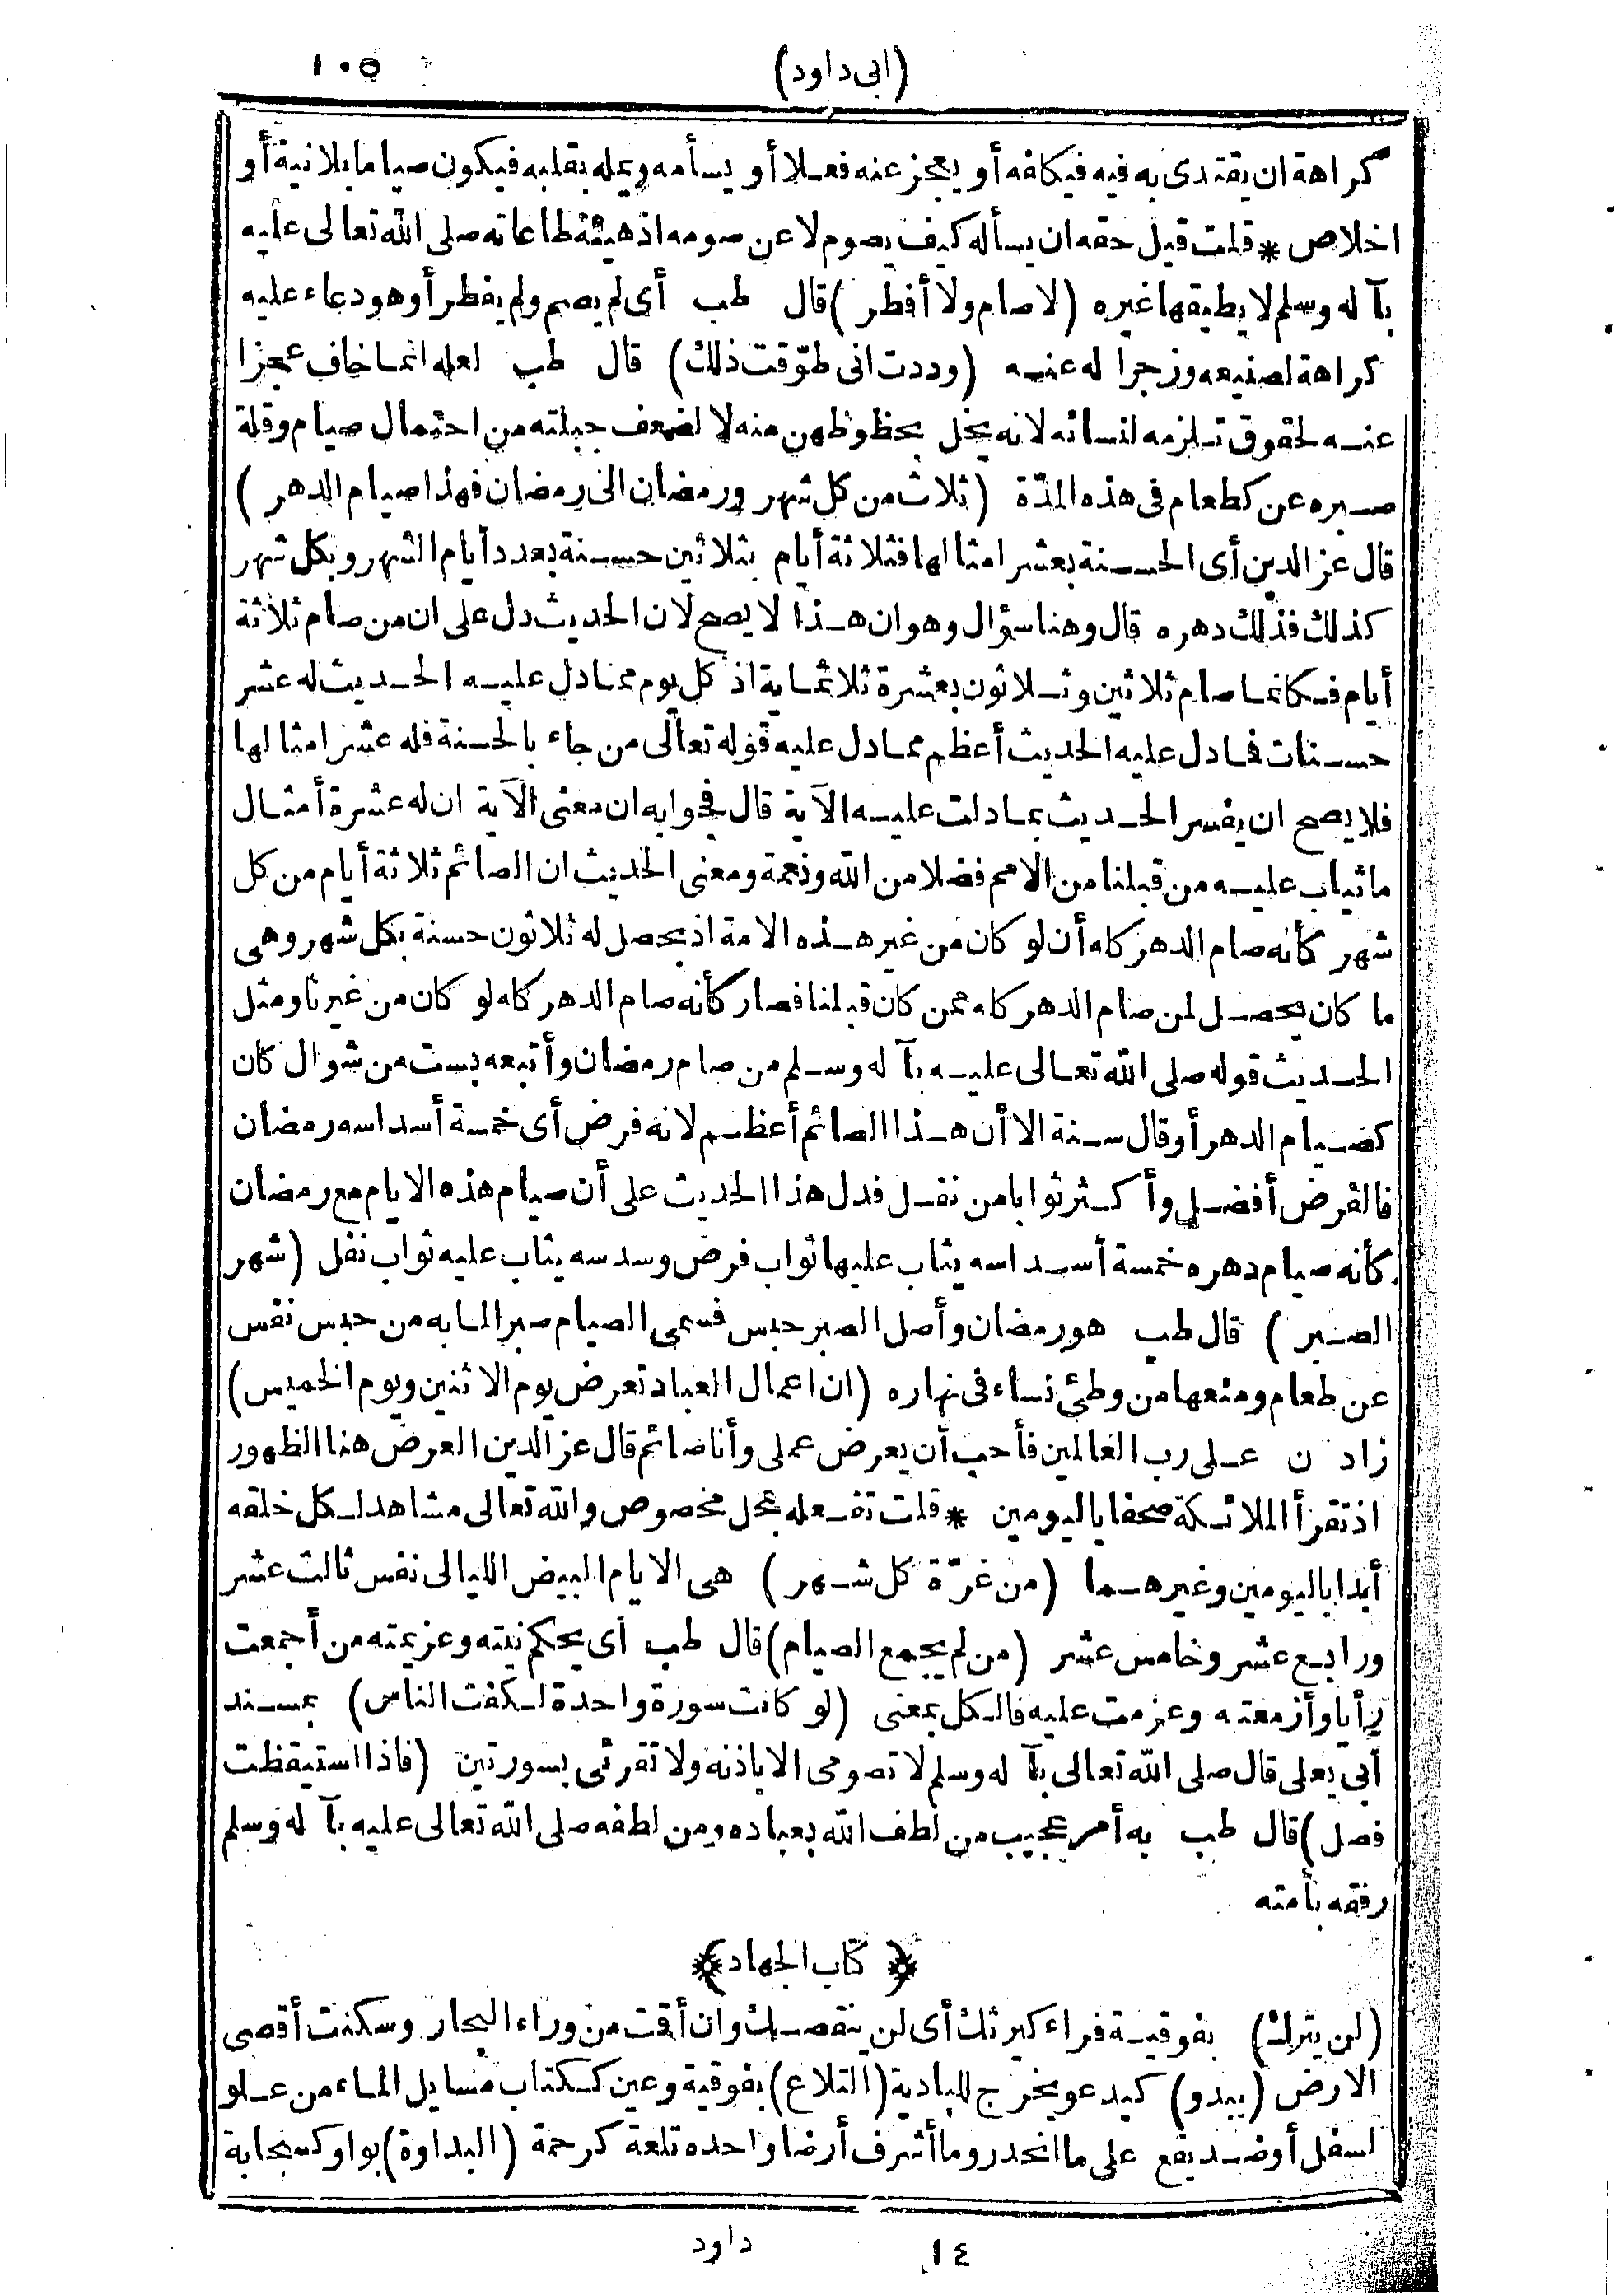 (ابى داود) ١٠٥
كراهة ان يقتدى به فيه فيكافه أو يعجز عنه فعلا أو يسأمه ويمله بقلبه فيكون صياما بلانية أو
اخلاص * قلت قيل حقه ان يسأله كيف يصوم لا عن صومه اذ هيئة طاعاته صلى الله تعالى عليه
بآ له وسلم لا يطيقها غيره (لا صام ولا أفطر) قال طب أى لم يصم ولم يفطر أو هو دعاء عليه
كراهة لصنيعه وزجرا له عنه (وددت انى طوّقت ذلك) قال طب لعله انما خاف عجزا
عنه لحقوق تلزمه لنسائه لانه يخل بحظوظهن منه لا لضعف جبلته من احتمال صيام وقلة
صبره عن كطعام فى هذه المدّة (ثلاث من كل شهر ورمضان الى رمضان فهذا صيام الدهر)
قال عز الدين أى الحسنة بعشر امثالها فثلاثة أيام بثلاثين حسنة بعدد أيام الشهر وبكل شهر
كذلك فذلك دهره قال وهنا سؤال وهو ان هذا لا يصح لان الحديث دل على ان من صام ثلاثة
أيام فكانما صام ثلاثين وثلاثون بعشرة ثلاثماية اذ كل يوم مما دل عليه الحديث له عشر
حسنات فما دل عليه الحديث أعظم مما دل عليه قوله تعالى من جاء بالحسنة فله عشر امثالها
فلا يصح ان يفسر الحديث بما دلت عليه الآية قال فجوابه ان معنى الآية ان له عشرة أمثال
ما ثياب عليه من قبلنا من الامم فضلا من الله ونعمة ومعنى الحديث ان الصائم ثلاثة أيام من كل
شهر كأنه صام الدهر كاه أن لو كان من غير هذه الامة اذ يحصل له ثلاثون حسنة بكل شهر وهى
ما كان يحصل لمن صام الدهر كاه ممن كان قبلنا فصار كأنه صام الدهر كاه لو كان من غيرنا ومثل
الحديث قوله صلى الله تعالى عليه بآ له وسلم من صام رمضان وأتبعه بست من شوال كان
كصيام الدهر أو قال سنة الا أن هذا الصائم أعظم لانه فرض أى خمسة أسداسه رمضان
فالفرض أفضل وأكثر ثوابا من نفل فدل هذا الحديث على أن صيام هذه الايام مع رمضان
كأنه صيام دهره خمسة أسداسه يثاب عليها ثواب فرض وسدسه يثاب عليه ثواب نفل (شهر
الصبر) قال طب هو رمضان وأصل الصبر حبس فسمى الصيام صبرا لما به من حبس نفس
عن طعام ومنعها من وطئ نساء فى نهاره (ان اعمال العباد تعرض يوم الاثنين ويوم الخميس)
زاد ن على رب العالمين فأحب أن يعرض عملى وأنا صائم قال عز الدين العرض هنا الظهور
اذ تقرأ الملائكة صحفا باليومين * قلت تفعله بمحل مخصوص والله تعالى مشاهد لكل خلقه
أبدا باليومين وغيرهما (من غرّة كل شهر) هى الايام البيض الليالى نفس ثالث عشر
ورابع عشر وخامس عشر (من لم يجمع الصيام) قال طب أى يحكم نيته وعزيمته من أجمعت
رأيا وأزمعته وعزمت عليه فالكل بمعنى (لو كانت سورة واحدة لكفت الناس) بمسند
أبى يعلى قال صلى الله تعالى بآ له وسلم لا تصومى الا باذنه ولا تقرئى بسورتين (فاذا استيقظت
فصل) قال طب به أمر عجيب من لطف الله بعباده ومن لطفه صلى الله تعالى عليه بآ له وسلم
رفقه بأمته
﴿ كتاب الجهاد ﴾
(لن يترك) بفوقية فراء كيرثك أى لن ينقصك وان أقت من وراء البحار وسكنت أقصى
الارض (يبدو) كيدعو يخرج للبادية (التلاع) بفوقية وعين ككتاب مسايل الماء من علو
لسفل أو ضد يقع على ما انحدر وما أشرف أرضا واحده تلعة كرحمة (البداوة) بواو كسحابة
١٤ داود